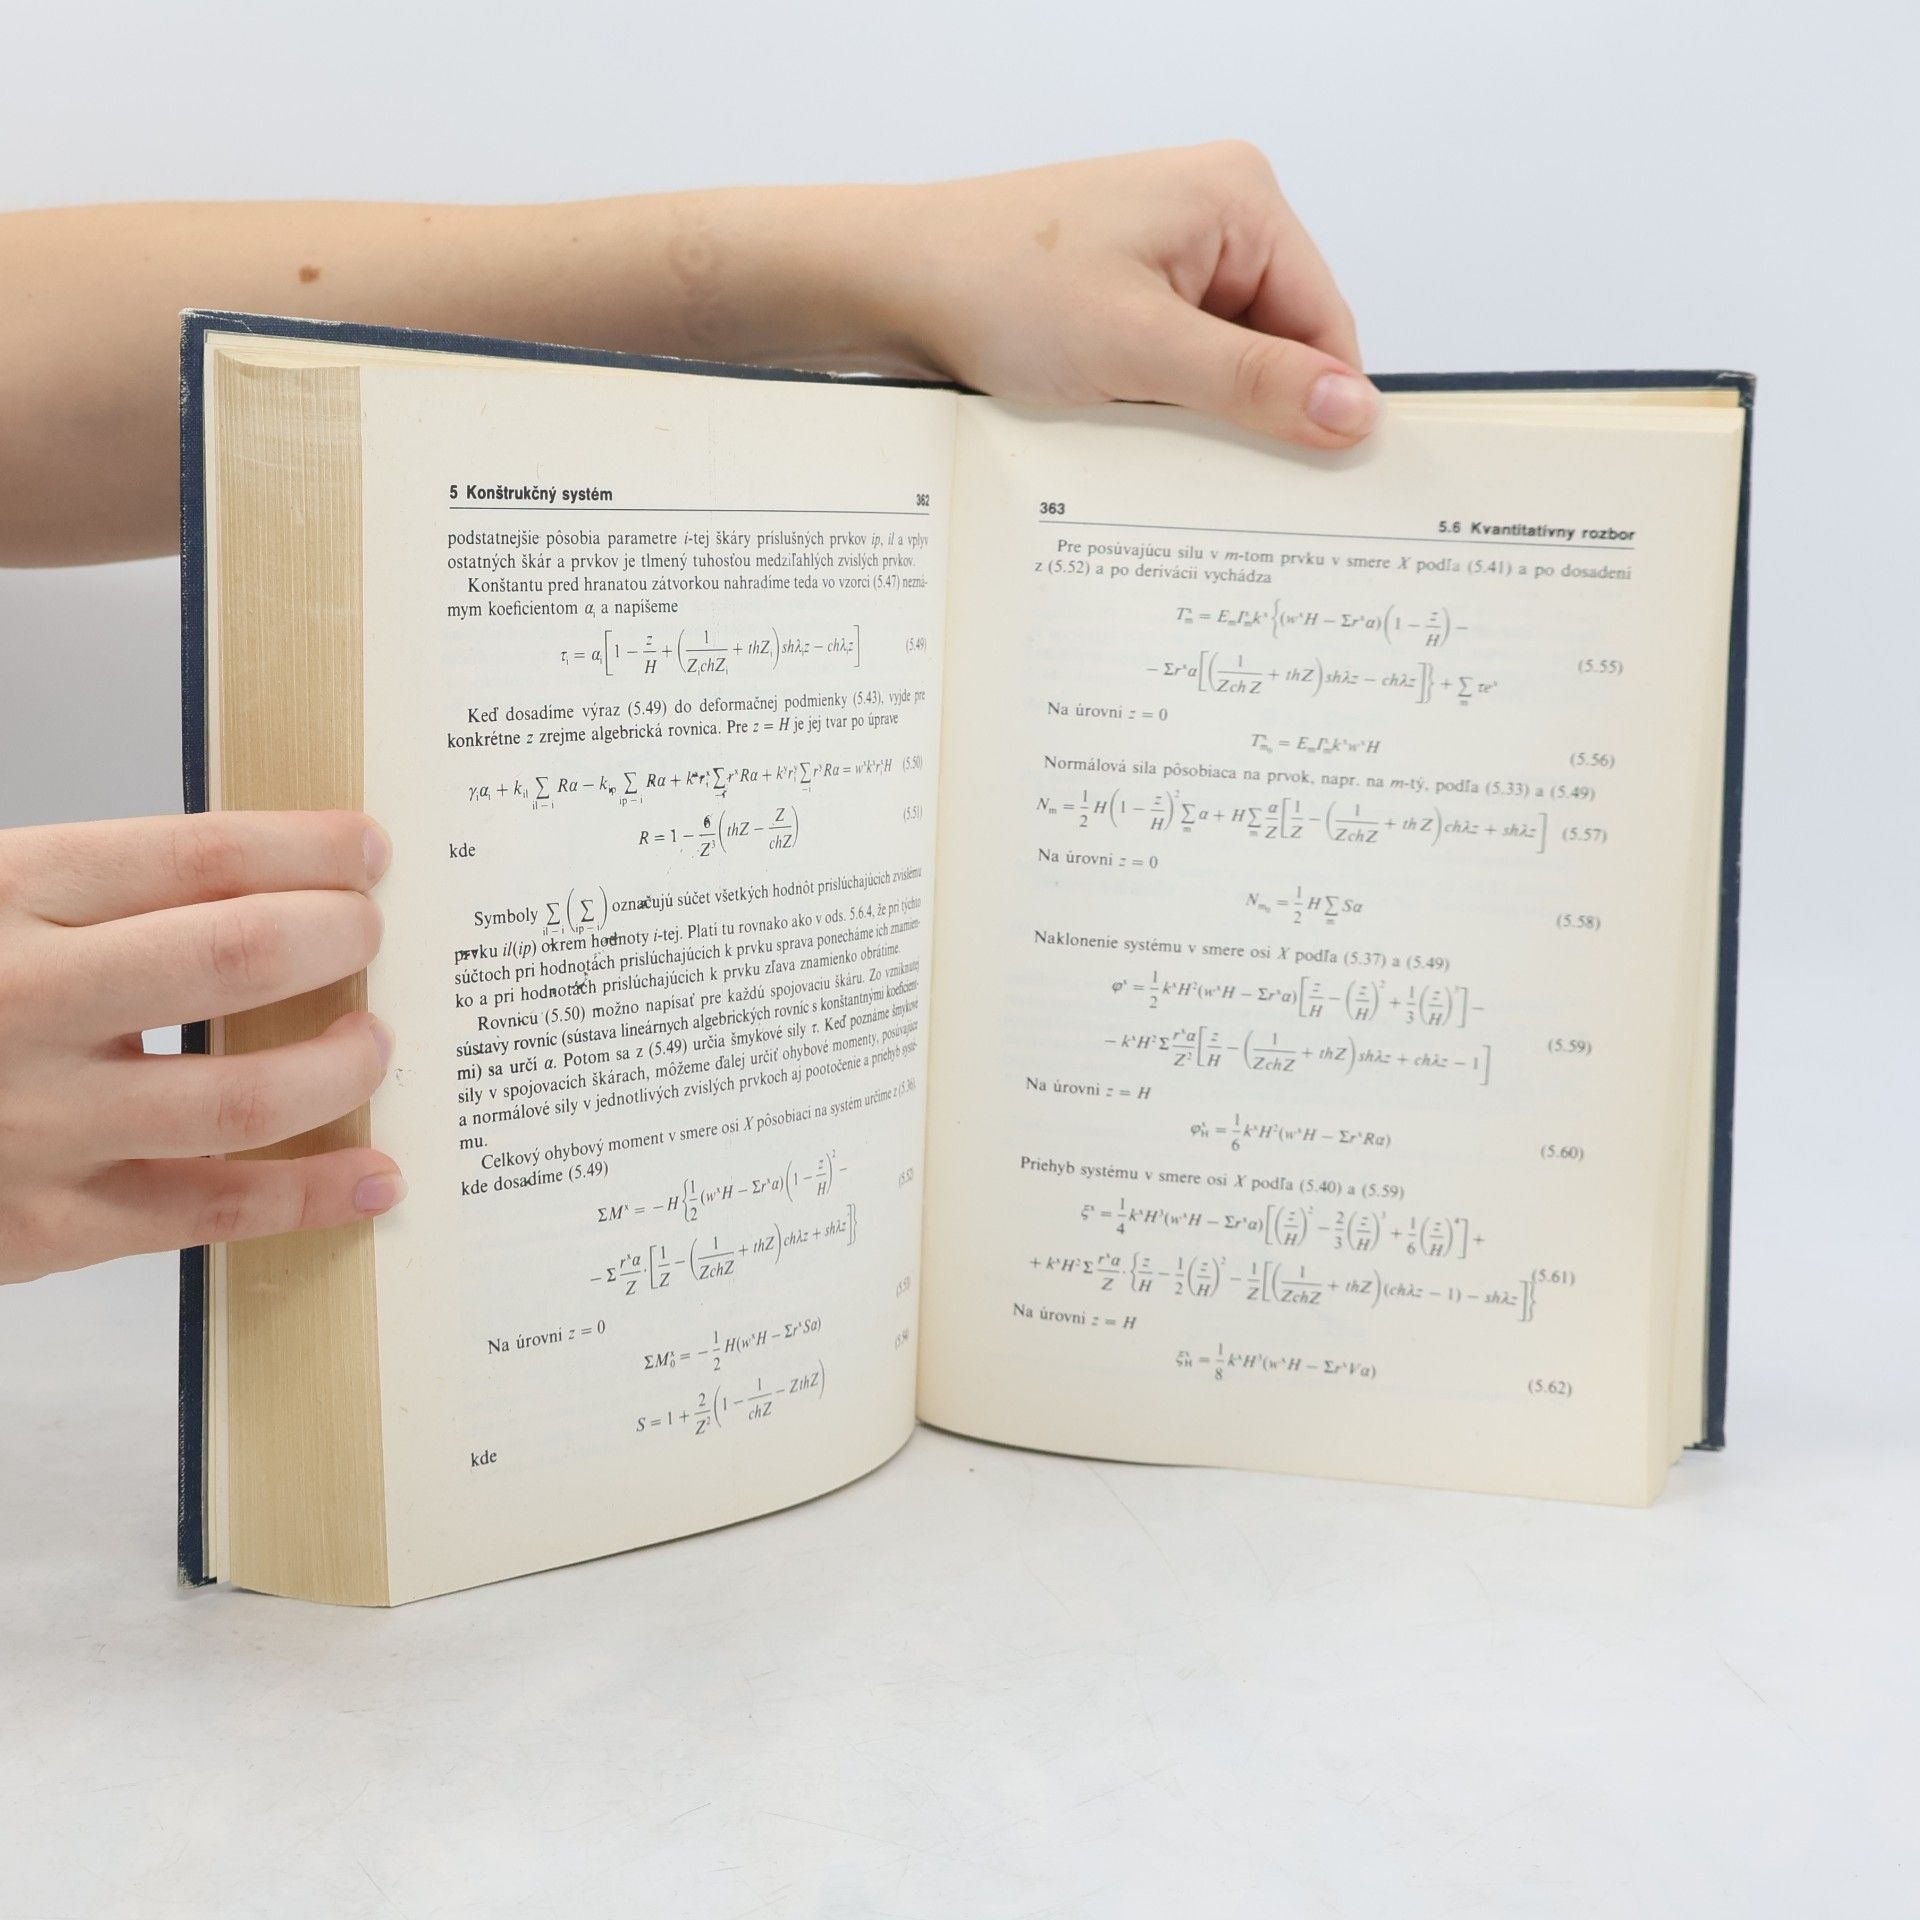 5 Konštrukčný systém 362
podstatnejšie pôsobia parametre i-tej škáry príslušných prvkov ip, il a vplyv
ostatných škár a prvkov je tlmený tuhosťou medziľahlých zvislých prvkov.
Konštantu pred hranatou zátvorkou nahradíme teda vo vzorci (5.47) nezná-
mym koeficientom αᵢ a napíšeme
τᵢ = αᵢ[1 − z/H + (1/(ZᵢchZᵢ) + thZᵢ)shλᵢz − chλᵢz] (5.49)
Keď dosadíme výraz (5.49) do deformačnej podmienky (5.43), vyjde pre
konkrétne z zrejme algebrická rovnica. Pre z = H je jej tvar po úprave
γᵢαᵢ + kᵢₗ Σ_{il−i} Rα − kᵢₚ Σ_{ip−i} Rα + kˣrᵢˣ Σ_{−i} rˣRα + kʸrᵢʸ Σ_{−i} rʸRα = wˣkˣrᵢˣH (5.50)
kde R = 1 − 6/Z³(thZ − Z/chZ) (5.51)
Symboly Σ_{il−i} (Σ_{ip−i}) označujú súčet všetkých hodnôt prislúchajúcich zvislému
prvku il(ip) okrem hodnoty i-tej. Platí tu rovnako ako v ods. 5.6.4, že pri týchto
súčtoch pri hodnotách prislúchajúcich k prvku sprava ponecháme ich znamien-
ko a pri hodnotách prislúchajúcich k prvku zľava znamienko obrátime.
Rovnicu (5.50) možno napísať pre každú spojovaciu škáru. Zo vzniknutej
sústavy rovníc (sústava lineárnych algebrických rovníc s konštantnými koeficient-
mi) sa určí α. Potom sa z (5.49) určia šmykové sily τ. Keď poznáme šmykové
sily v spojovacích škárach, môžeme ďalej určiť ohybové momenty, posúvajúce
a normálové sily v jednotlivých zvislých prvkoch aj pootočenie a priehyb systé-
mu.
Celkový ohybový moment v smere osi X pôsobiaci na systém určíme z (5.36),
kde dosadíme (5.49)
ΣMˣ = −H{1/2(wˣH − Σrˣα)(1 − z/H)² −
− Σ rˣα/Z · [1/Z − (1/(ZchZ) + thZ)chλz + shλz]} (5.52)
Na úrovni z = 0
ΣM₀ˣ = −1/2 H(wˣH − ΣrˣSα) (5.53)
kde S = 1 + 2/Z²(1 − 1/chZ − ZthZ) (5.54)
363 5.6 Kvantitatívny rozbor
Pre posúvajúcu silu v m-tom prvku v smere X podľa (5.41) a po dosadení
z (5.52) a po derivácii vychádza
Tₘˣ = EₘIₘˣkˣ{(wˣH − Σrˣα)(1 − z/H) −
− Σrˣα[(1/(ZchZ) + thZ)shλz − chλz]} + Σₘ τeˣ (5.55)
Na úrovni z = 0
Tₘ₀ˣ = EₘIₘˣkˣwˣH (5.56)
Normálová sila pôsobiaca na prvok, napr. na m-tý, podľa (5.33) a (5.49)
Nₘ = 1/2 H(1 − z/H)² Σₘ α + H Σₘ α/Z[1/Z − (1/(ZchZ) + thZ)chλz + shλz] (5.57)
Na úrovni z = 0
Nₘ₀ = 1/2 H Σₘ Sα (5.58)
Naklonenie systému v smere osi X podľa (5.37) a (5.49)
φˣ = 1/2 kˣH²(wˣH − Σrˣα)[z/H − (z/H)² + 1/3(z/H)³] −
− kˣH²Σ rˣα/Z²[z/H − (1/(ZchZ) + thZ)shλz + chλz − 1] (5.59)
Na úrovni z = H
φˣ_H = 1/6 kˣH²(wˣH − ΣrˣRα) (5.60)
Priehyb systému v smere osi X podľa (5.40) a (5.59)
ξˣ = 1/4 kˣH³(wˣH − Σrˣα)[(z/H)² − 2/3(z/H)³ + 1/6(z/H)⁴] +
+ kˣH²Σ rˣα/Z · {z/H − 1/2(z/H)² − 1/Z[(1/(ZchZ) + thZ)(chλz − 1) − shλz]} (5.61)
Na úrovni z = H
ξˣ_H = 1/8 kˣH³(wˣH − ΣrˣVα) (5.62)